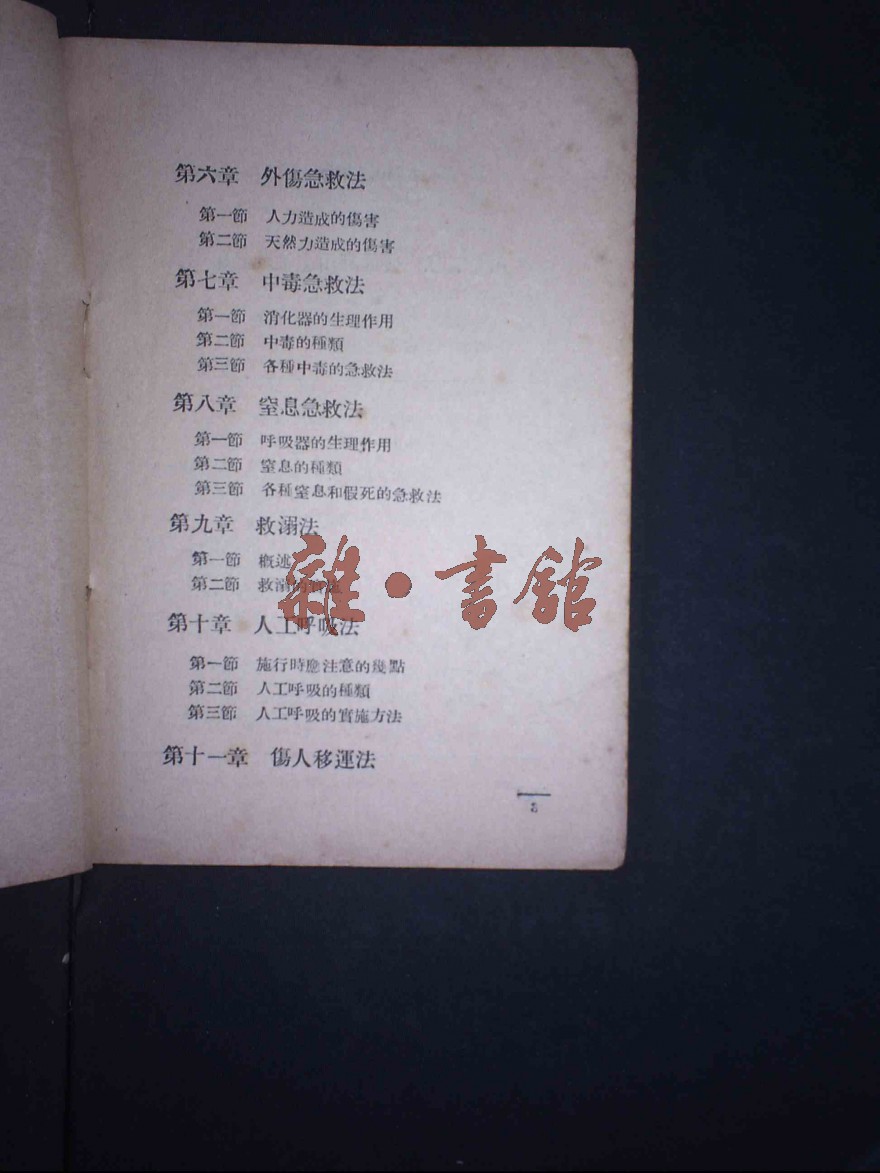 第六章 外傷急救法
第一節 人力造成的傷害
第二節 天然力造成的傷害
第七章 中毒急救法
第一節 消化器的生理作用
第二節 中毒的種類
第三節 各種中毒的急救法
第八章 窒息急救法
第一節 呼吸器的生理作用
第二節 窒息的種類
第三節 各種窒息和假死的急救法
第九章 救溺法
第一節 概述
第二節 救溺的實施
雜·書館
第十章 人工呼吸法
第一節 施行時應注意的幾點
第二節 人工呼吸的種類
第三節 人工呼吸的實施方法
第十一章 傷人移運法
3